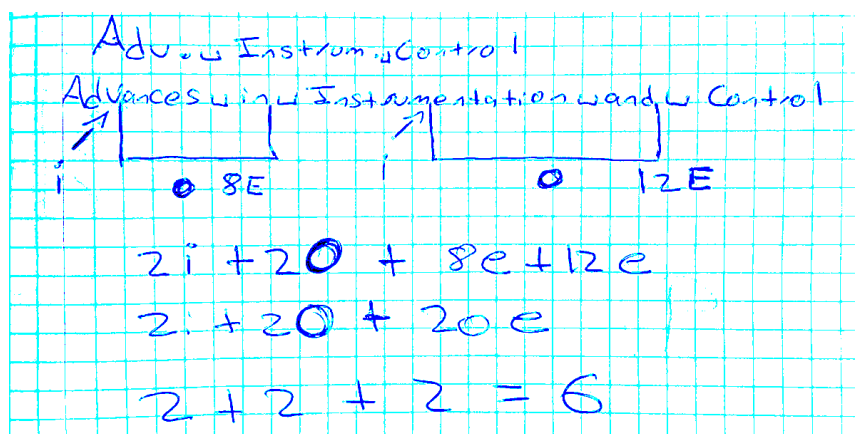 Adv.␣Instrum.␣Control
Advances␣in␣Instrumentation␣and␣Control
i O 8E i O 12E
2i + 2O + 8e + 12e
2i + 2O + 20e
2 + 2 + 2 = 6